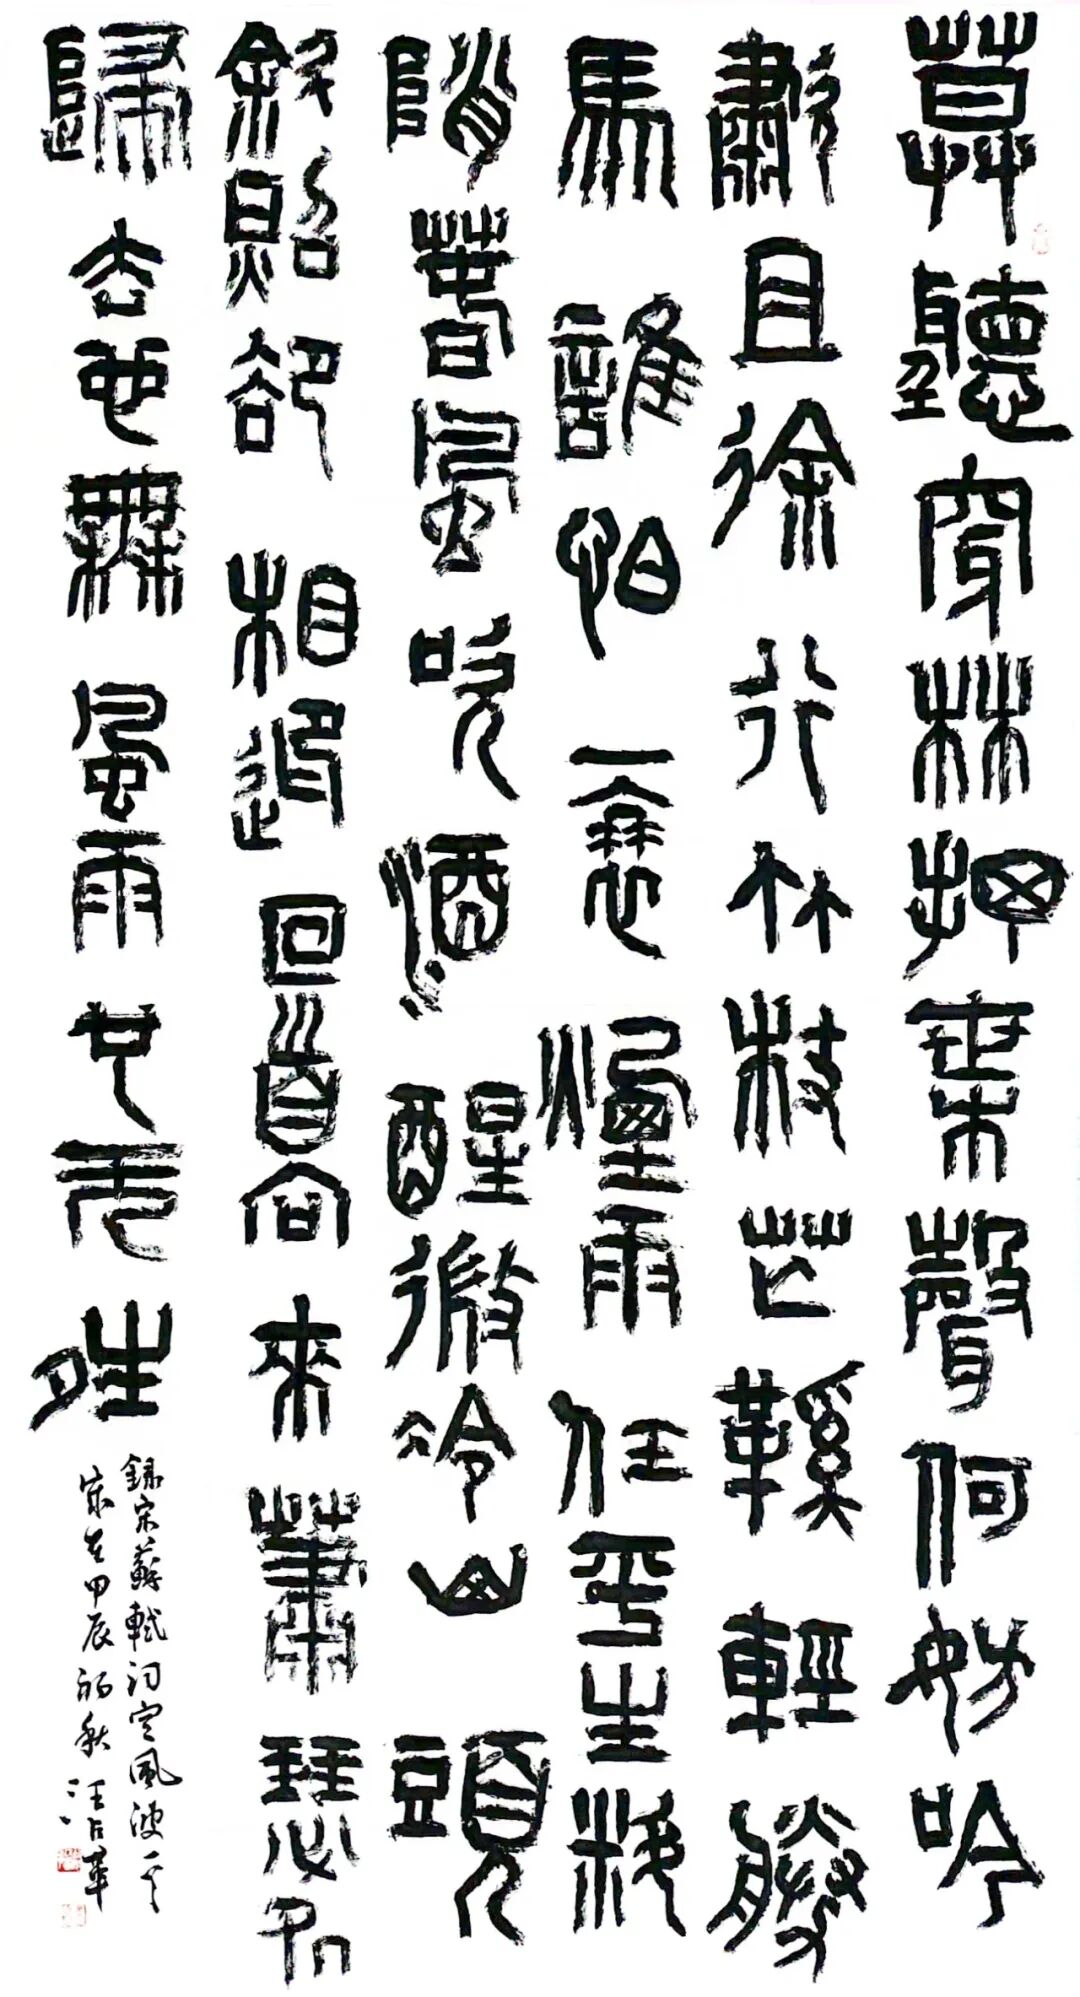 莫聽穿林押葉聲何妨吟
歗且徐行竹杖芒鞵輕勝
馬誰怕一衰煙雨任平生料
陗春風吹酒醒微冷山頭
斜照卻相迎回首向來蕭瑟処
歸去也無風雨也无夝
錄宋蘇軾詞定風波一首
歲在甲辰初秋汪占華